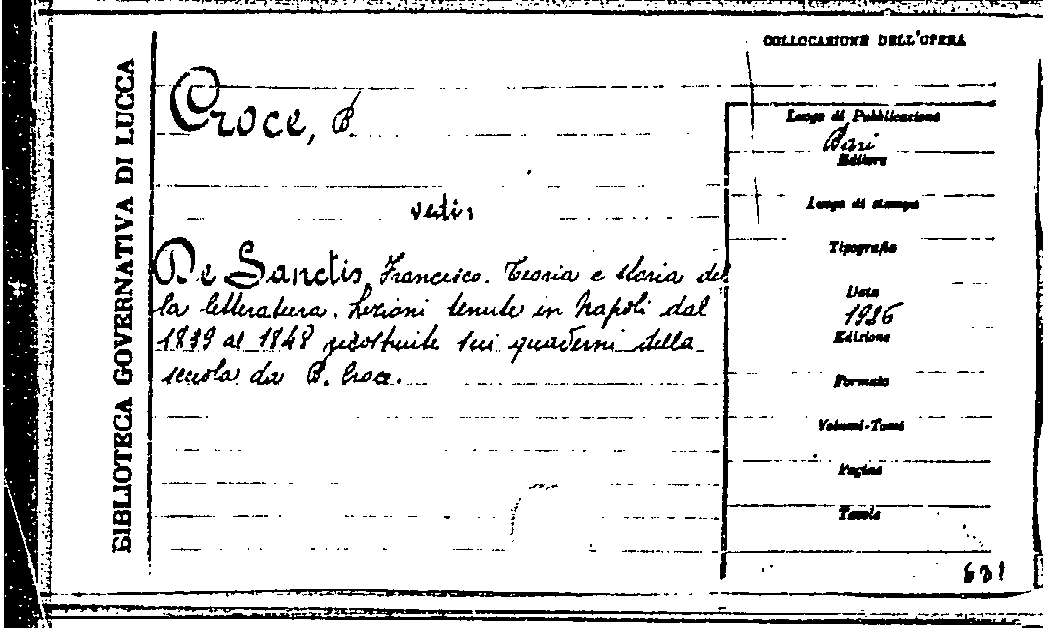 BIBLIOTECA GOVERNATIVA DI LUCCA
COLLOCAZIONE DELL'OPERA
Croce, B.
vedi:
De Sanctis, Francesco. Teoria e storia del
la letteratura. Lezioni tenute in Napoli dal
1839 al 1848 ricostruite sui quaderni della
scuola da B. Croce.
Luogo di Pubblicazione
Bari
Editore
Luogo di stampa
Tipografia
Data
1926
Edizione
Formato
Volumi-Tomi
Pagine
Tavole
631